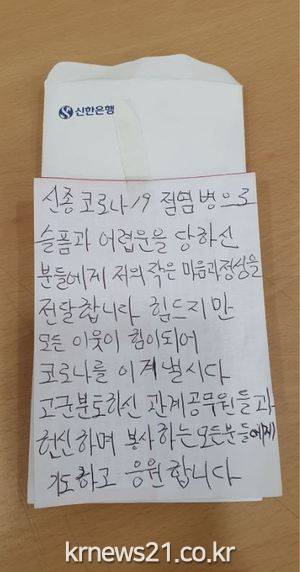 신한은행
신종 코로나19 점염병으로
슬픔과 어렵운을 당하신
분들에게 저의 작은 마음과 정성을
전달합니다 힘드지만
모든 이웃이 힘이되어
코로나를 이겨냅시다
고군분토하신 관계공무원들과
헌신하며 봉사하는모든분들에게
기도하고 응원합니다
krnews21.co.kr